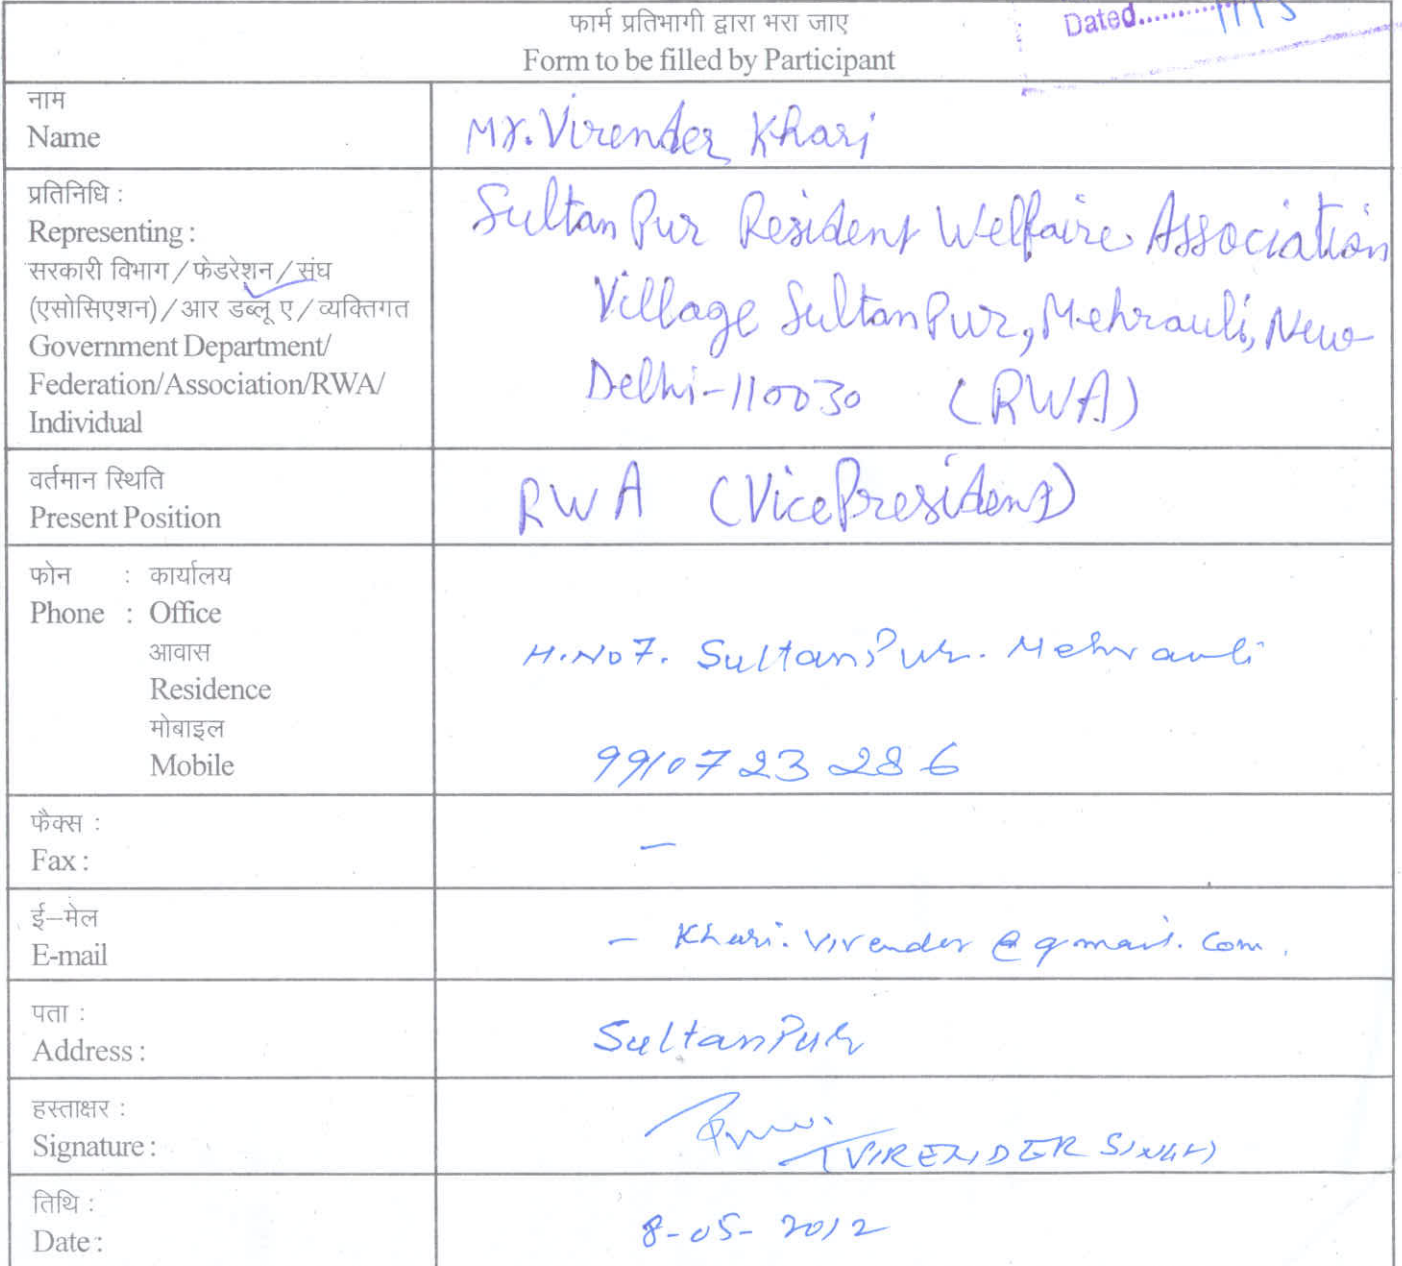 फार्म प्रतिभागी द्वारा भरा जाए
Form to be filled by Participant
Dated..........
नाम
Name
Mr. Virender Khari
प्रतिनिधि :
Representing :
सरकारी विभाग / फेडरेशन / संघ
(एसोसिएशन) / आर डब्लू ए / व्यक्तिगत
Government Department/
Federation/Association/RWA/
Individual
Sultan Pur Resident Welfaire Association
Village Sultan Pur, Mehrauli, New
Delhi-110030 (RWA)
वर्तमान स्थिति
Present Position
RWA (Vice President)
फोन : कार्यालय
Phone : Office
आवास
Residence
H.No 7. Sultan Pur. Mehrauli
मोबाइल
Mobile
9910723286
फैक्स :
Fax :
–
ई–मेल
E-mail
– Khari.virender@gmail.com.
पता :
Address :
Sultan Pur
हस्ताक्षर :
Signature :
(VIRENDER SINGH)
तिथि :
Date :
8-05-2012